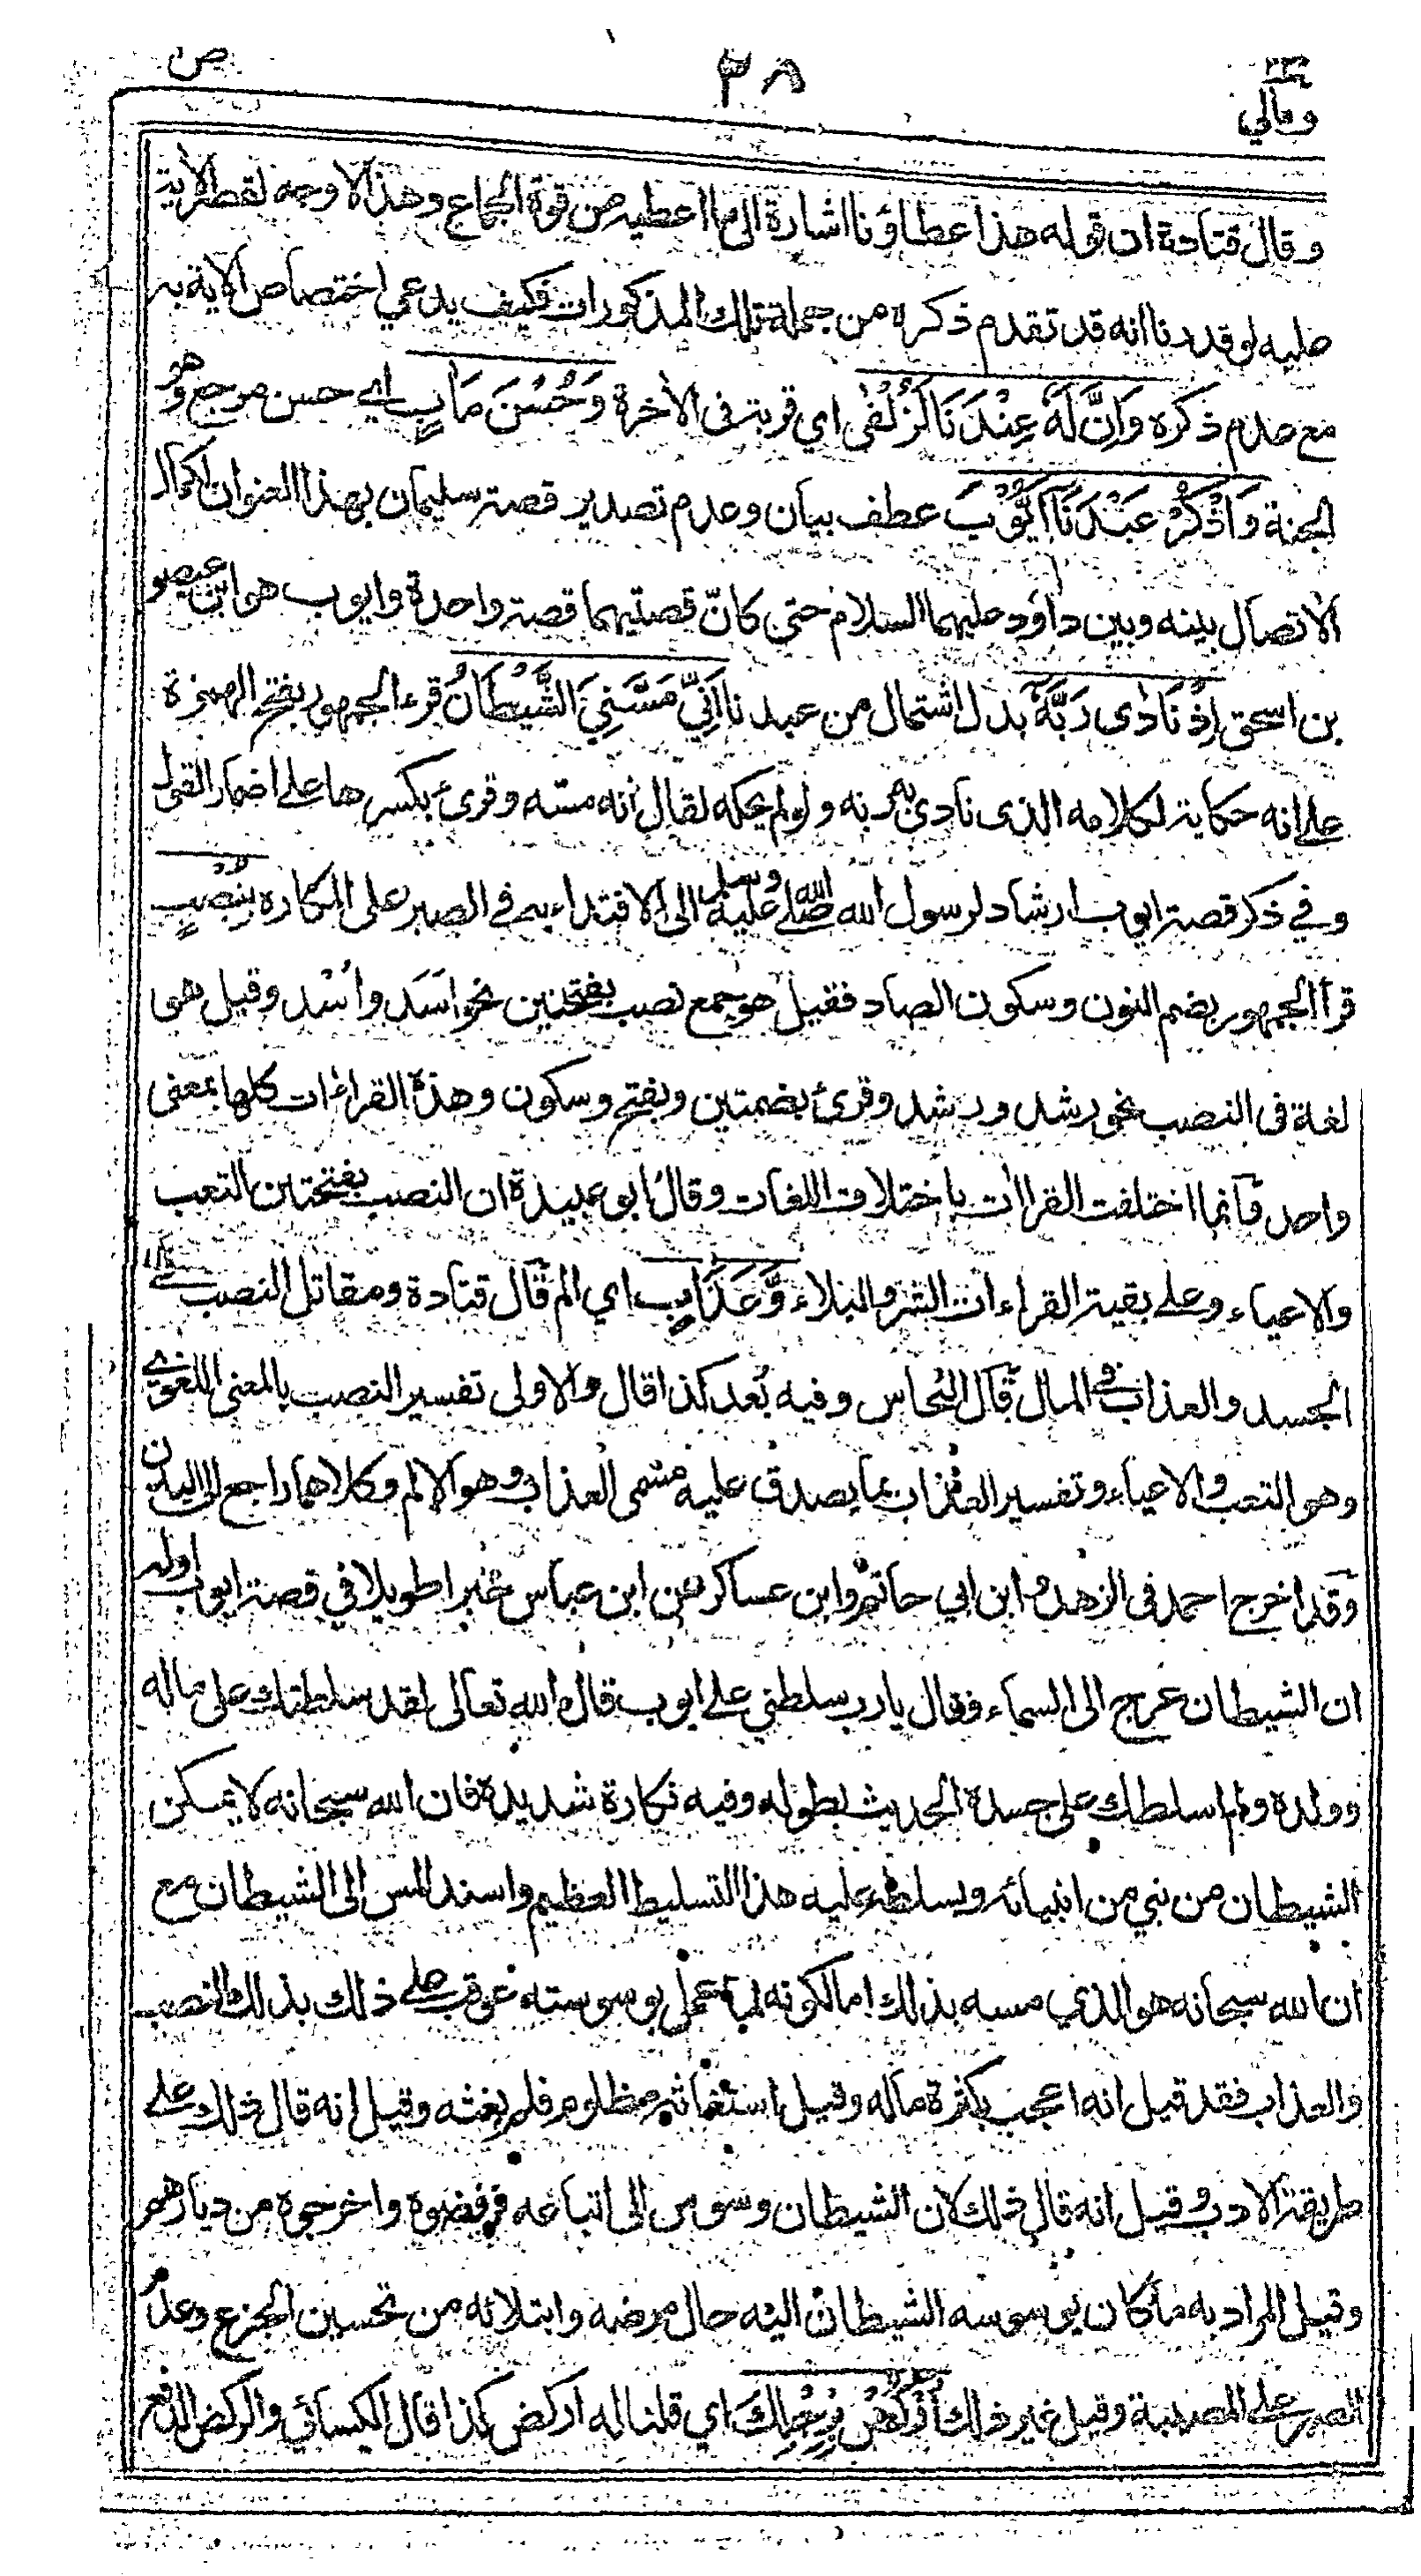 ومالي ٣٨ ص
وقال قتادة ان قوله هذا عطاؤنا اشارة الى ما اعطيه من قوة الجماع وهذا لا وجه لقصر الأية
عليه لو قدرنا انه قد تقدم ذكره من جملة تلك المذكورات فكيف يدعي اختصاص الاية به
مع عدم ذكره وَاِنَّ لَهٗ عِنْدَنَا لَزُلْفٰى اي قربة فى الأخرة وَحُسْنَ مَاٰبٍ اي حسن مرجع وهو
الجنة وَاذْكُرْ عَبْدَنَآ اَيُّوْبَ عطف بيان وعدم تصدير قصة سليمان بهذا العنوان لكمال
الاتصال بينه وبين داود عليهما السلام حتى كانّ قصتيهما قصة واحدة وايوب هو ابن عيصو
بن اسحق اِذْ نَادٰى رَبَّهٗٓ بدل اشتمال من عبدنا اَنِّيْ مَسَّنِيَ الشَّيْطَانُ قرء الجمهور بفتح الهمزة
على انه حكاية لكلامه الذى نادى به ربه ولو لم يحكه لقال انه مسه وقرئ بكسرها على اضمار القول
وفي ذكر قصة ايوب ارشاد لرسول الله صلى الله عليه وسلم الى الاقتداء به في الصبر على المكاره بِنُصْبٍ
قرأ الجمهور بضم النون وسكون الصاد فقيل هو جمع نصب بفتحتين نحو اَسَد واُسْد وقيل هو
لغة فى النصب نحو رشد ورشد وقرئ بضمتين وبفتح وسكون وهذه القراءات كلها بمعنى
واحد وانما اختلفت القراأت باختلاف اللغات وقال ابو عبيدة ان النصب بفتحتين التعب
والاعياء وعلى بقية القراءات الشر والبلاء وَّعَذَابٍ اي الم قال قتادة ومقاتل النصب في
الجسد والعذاب في المال قال النحاس وفيه بُعد كذا قال والاولى تفسير النصب بالمعنى اللغوي
وهو التعب والاعياء وتفسير العذاب بما يصدق عليه مسمى العذاب وهو الالم وكلاهما راجع الى البدن
وقد اخرج احمد فى الزهد وابن ابي حاتم وابن عساكر عن ابن عباس خبرا طويلا في قصة ايوب اوله
ان الشيطان عرج الى السماء فقال يارب سلطني على ايوب قال الله تعالى لقد سلطتك على ماله
وولده ولم اسلطك على جسده الحديث بطوله وفيه نكارة شديدة فان الله سبحانه لا يمكن
الشيطان من نبي من انبيائه ويسلطه عليه هذا التسليط العظيم واسند المس الى الشيطان مع
ان الله سبحانه هو الذي مسه بذلك اما لكونه لما عمل بوسوسته عوقب على ذلك بذلك النصب
والعذاب فقد قيل انه اعجب بكثرة ماله وقيل استغاثه مظلوم فلم يغثه وقيل انه قال ذلك على
طريقة الادب وقيل انه قال ذلك لان الشيطان وسوس الى اتباعه فرفضوه واخرجوه من ديارهم
وقيل المراد به ما كان يوسوسه الشيطان اليه حال مرضه وابتلائه من تحسين الجزع وعدم
الصبر على المصيبة وقيل غير ذلك اُرْكُضْ بِرِجْلِكَ اي قلنا له اركض كذا قال الكسائي والركض الدفع